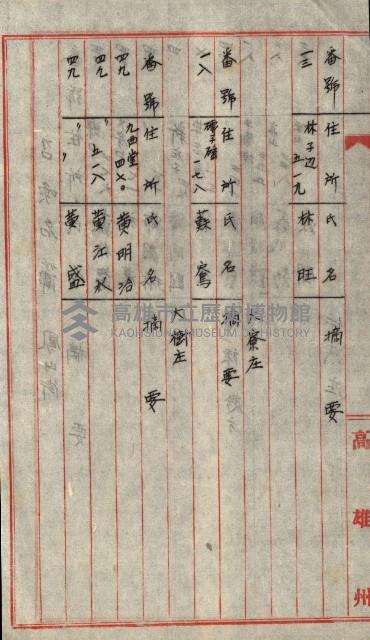 番號 住所 氏名 摘要
一三 林子辺 五一九 林旺
大寮庄
番號 住所 氏名 摘要
一八 一七八 蘇窩
大樹庄
番號 住所 氏名 摘要
四九 九曲堂 四七〇 黄明治
四九 〃 五一八 黄江水
四九 〃 〃 黄盛
高雄州
高雄市立歷史博物館
KAOHSIUNG MUSEUM OF HISTORY